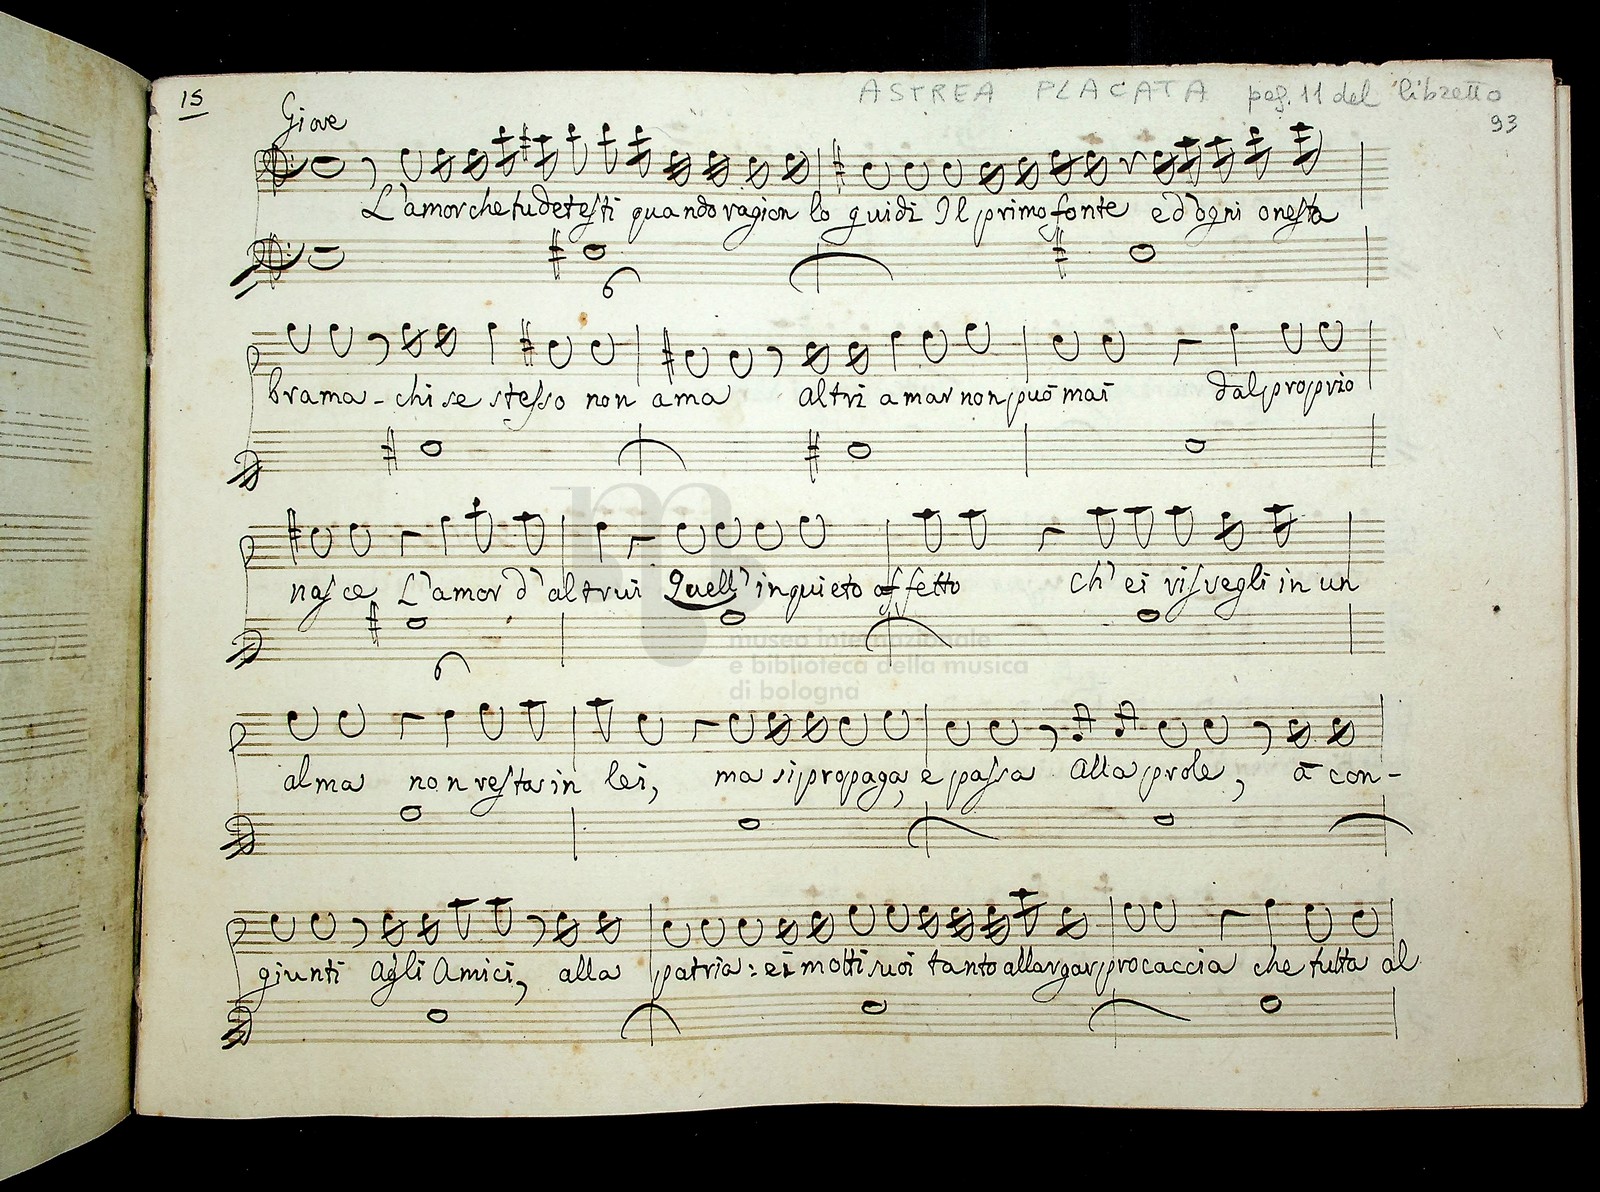 15
ASTREA PLACATA pag. 11 del libretto
93
Giove
L'amor che tu detesti quando ragion lo guidi Il primo fonte e d'ogni onesta
6
brama - chi se stesso non ama altri amar non può mai dal proprio
nasce L'amor d'altrui Quell' inquieto affetto ch' ei risvegli in un
6
museo internazionale
e biblioteca della musica
di bologna
alma non resta in lei, ma si propaga, e passa alla prole, à con-
giunti agli Amici, alla patria: ei molti suoi tanto allargar procaccia che tutta al